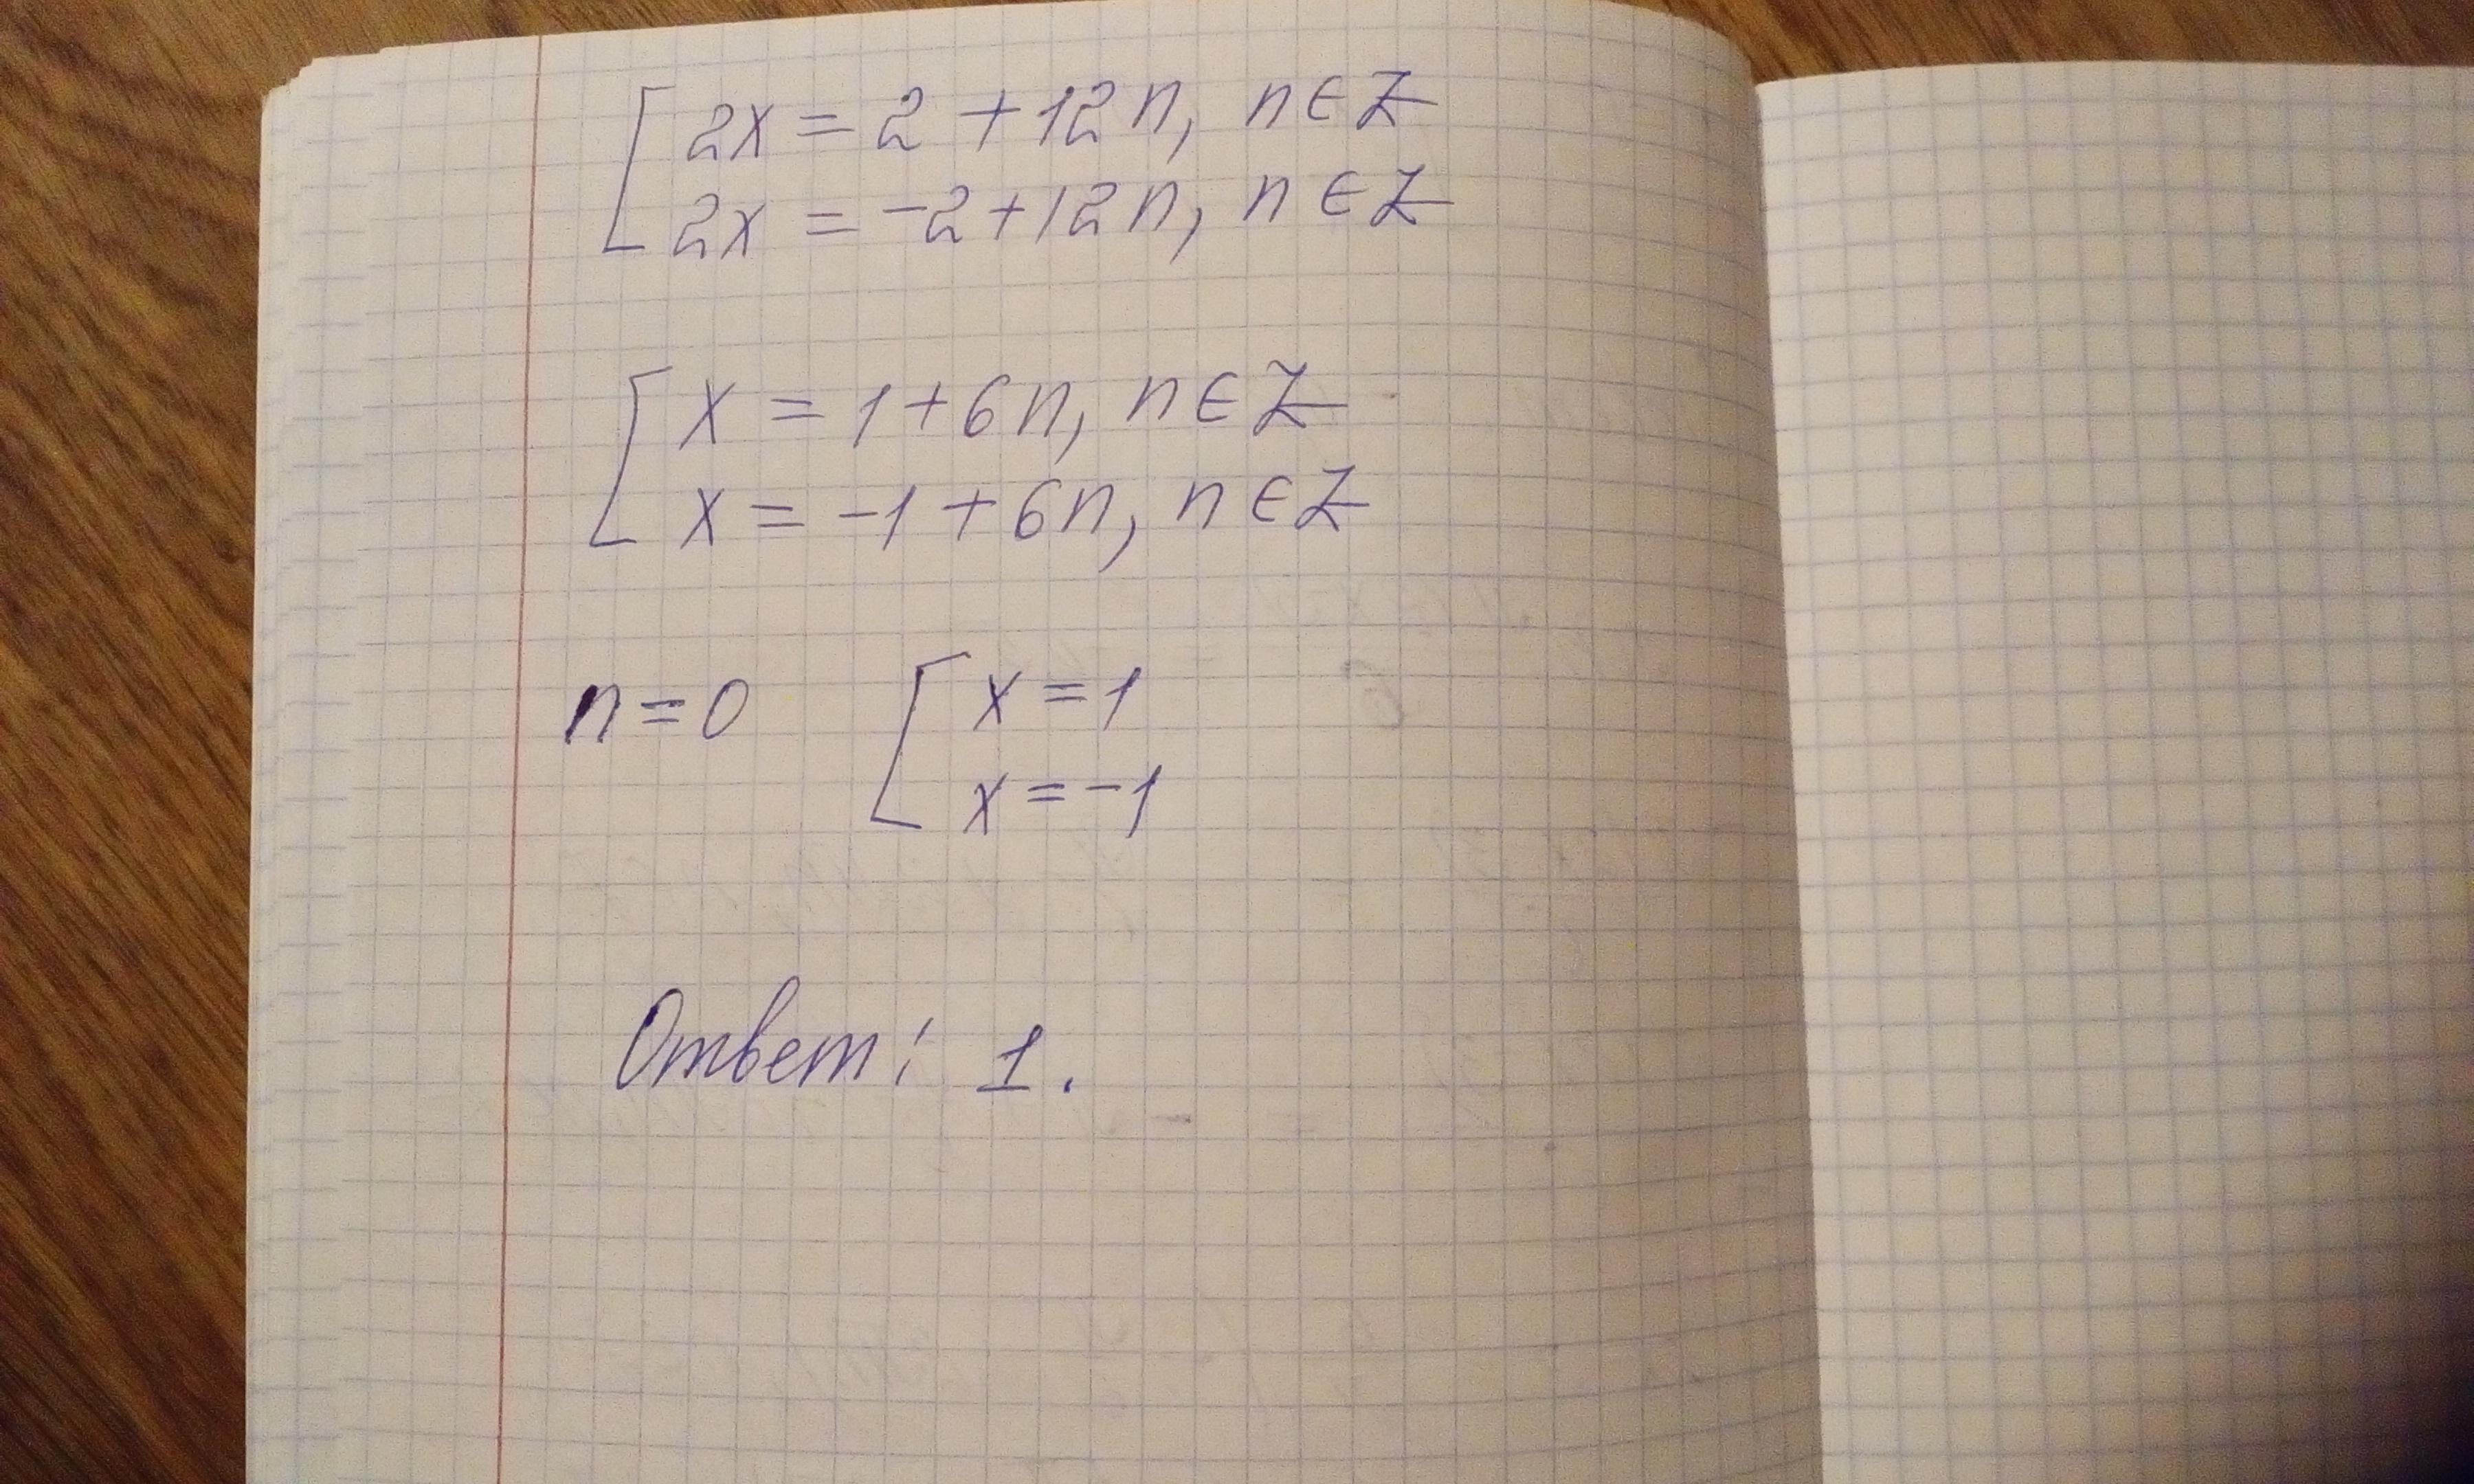 [ 2x = 2 + 12n, n ∈ Z
2x = -2 + 12n, n ∈ Z
[ x = 1 + 6n, n ∈ Z
x = -1 + 6n, n ∈ Z
n = 0 [ x = 1
x = -1
Ответ: 1.